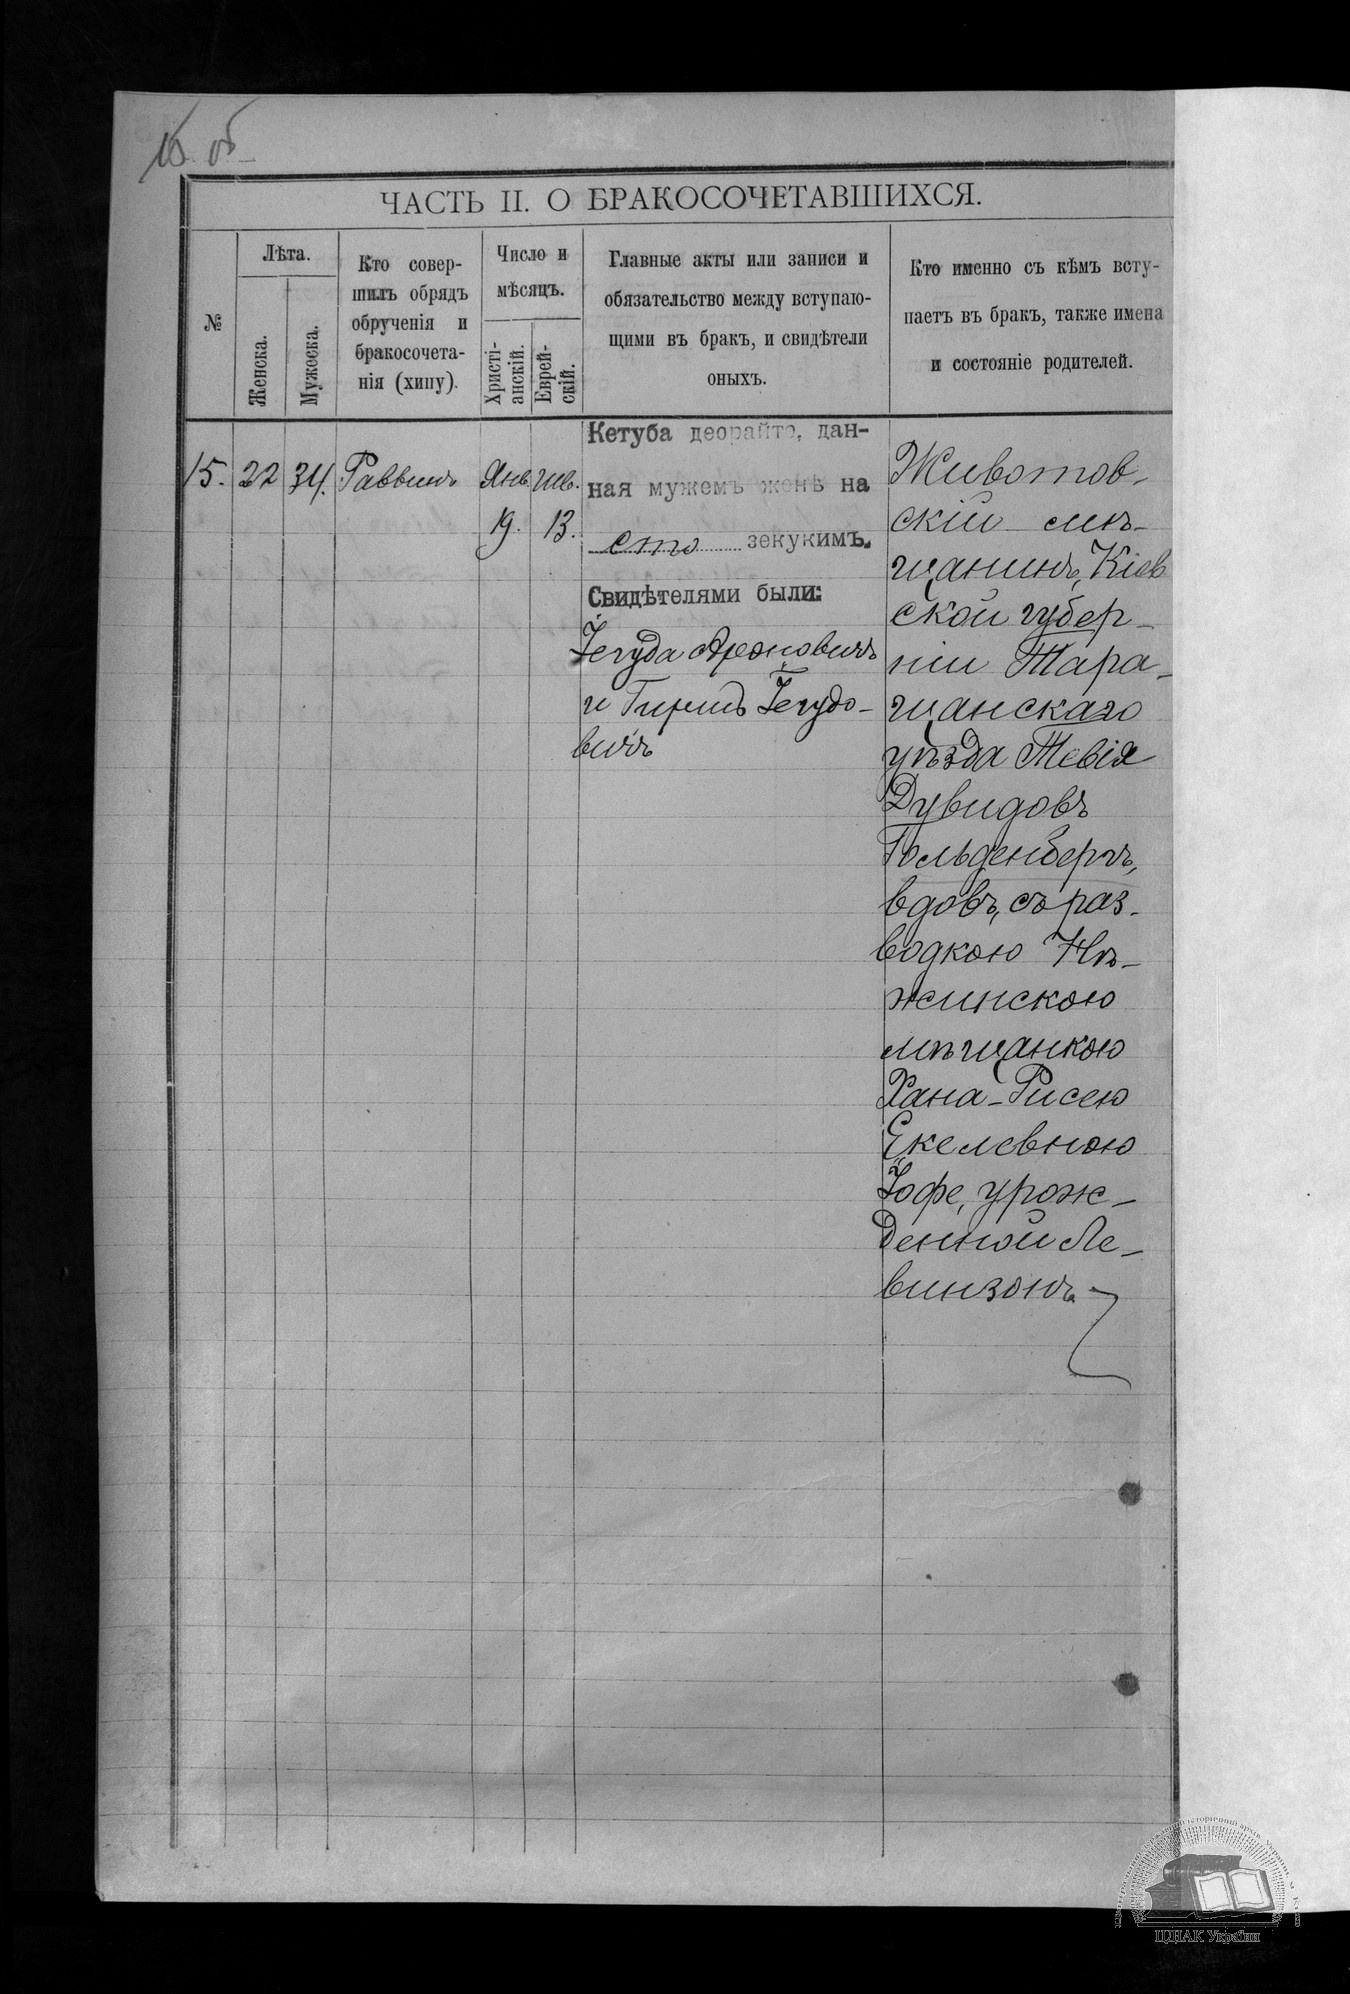 15 об
ЧАСТЬ II. О БРАКОСОЧЕТАВШИХСЯ.
№
Лѣта.
Женска.
Мужеска.
Кто совер-
шилъ обрядъ
обрученія и
бракосочета-
нія (хипу).
Число и
мѣсяцъ.
Христі-
анскій.
Еврей-
скій.
Главные акты или записи и
обязательство между вступаю-
щими въ бракъ, и свидѣтели
оныхъ.
Кто именно съ кѣмъ всту-
паетъ въ бракъ, также имена
и состояніе родителей.
15.
22
34.
Раввинъ
Янв.
19.
Шв.
13.
Кетуба деорайто, дан-
ная мужемъ женѣ на
сто зекукимъ.
Свидѣтелями были:
Іегуда Ароновичъ
и Гиршъ Іегудо-
вичъ
Животов-
скій мѣ-
щанинъ, Кіев
ской губер-
ніи Тара-
щанскаго
уѣзда Тевія
Дувидовъ
Гольденбергъ,
вдовъ, съ раз-
водкою Нѣ-
жинскою
мѣщанкою
Хана-Рисею
Екелевною
Іофе, урож-
денной Ле-
винзонъ.
ЦДІАК України